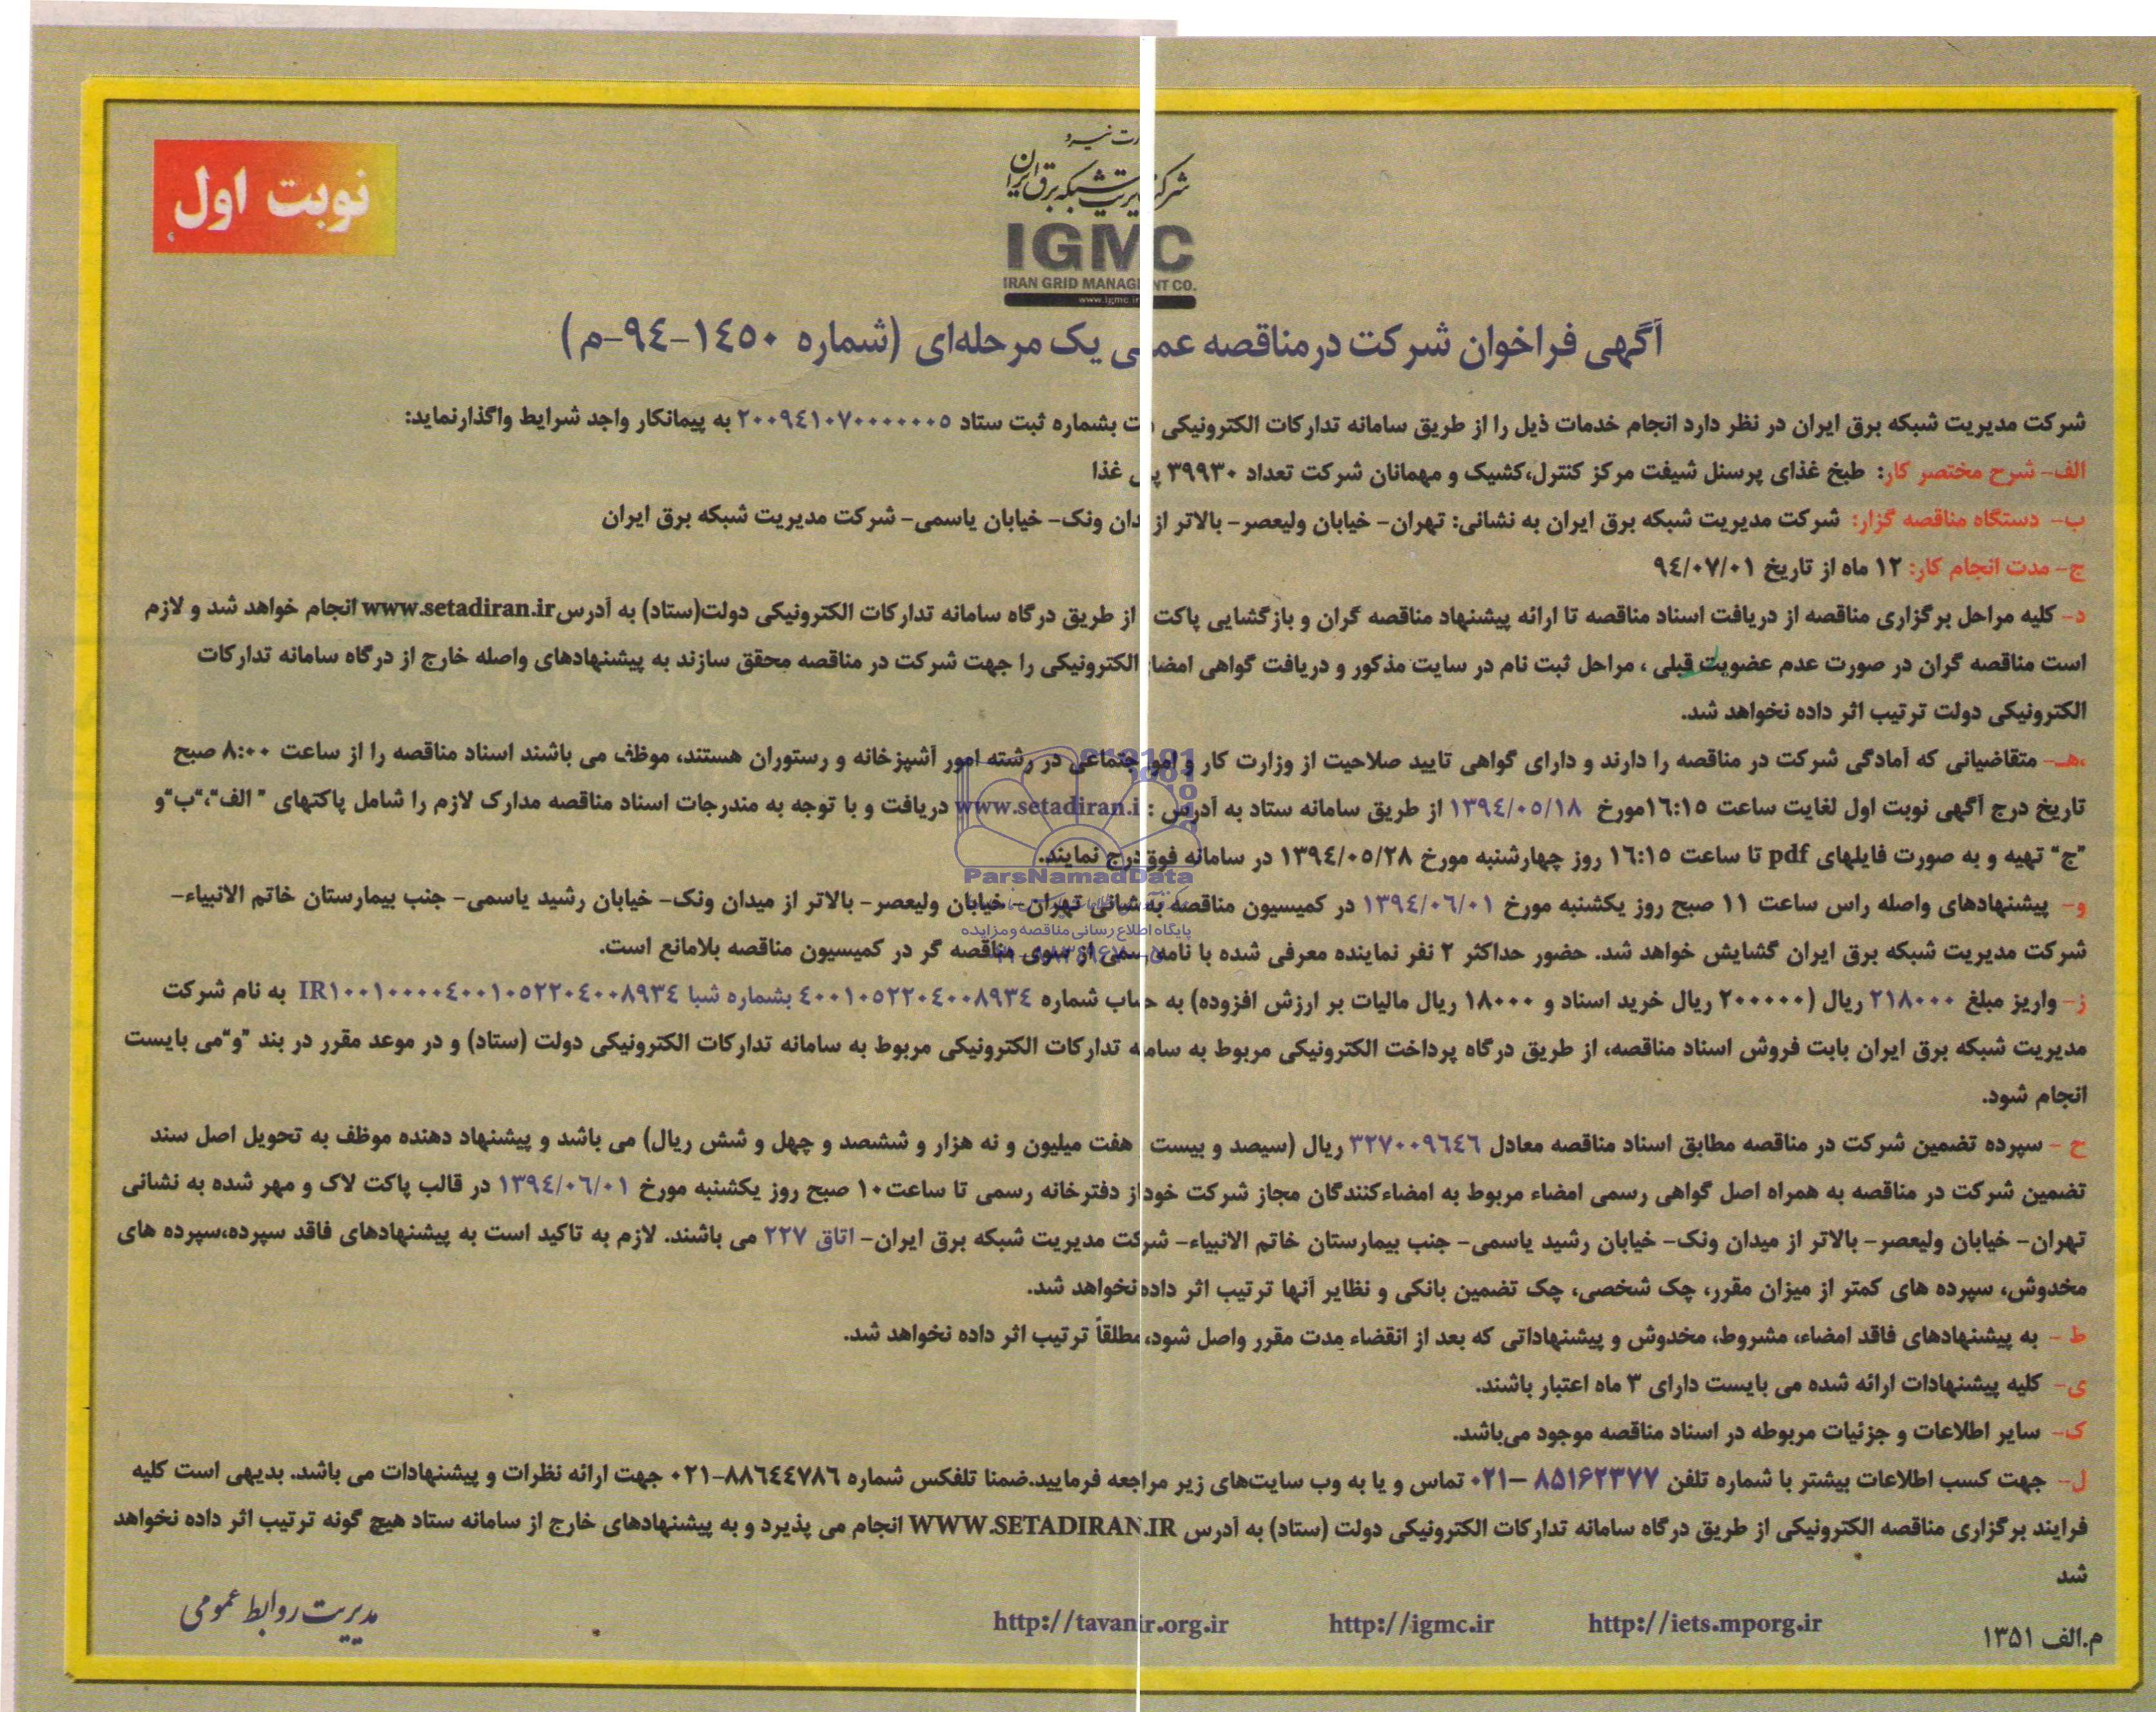 نوبت اول
شرکت مدیریت شبکه برق ایران
IGMC
IRAN GRID MANAG NT CO.
www.igmc.ir
آگهی فراخوان شرکت در مناقصه عمومی یک مرحله‌ای (شماره ۱۴۵۰-۹۴-م)
شرکت مدیریت شبکه برق ایران در نظر دارد انجام خدمات ذیل را از طریق سامانه تدارکات الکترونیکی بشماره ثبت ستاد ۲۰۰۹۴۱۰۷۰۰۰۰۰۰۰۵ به پیمانکار واجد شرایط واگذارنماید:
الف- شرح مختصر کار: طبخ غذای پرسنل شیفت مرکز کنترل،کشیک و مهمانان شرکت تعداد ۳۹۹۳۰ پرس غذا
ب- دستگاه مناقصه گزار: شرکت مدیریت شبکه برق ایران به نشانی: تهران- خیابان ولیعصر- بالاتر از میدان ونک- خیابان یاسمی- شرکت مدیریت شبکه برق ایران
ج- مدت انجام کار: ۱۲ ماه از تاریخ ۹۴/۰۷/۰۱
د- کلیه مراحل برگزاری مناقصه از دریافت اسناد مناقصه تا ارائه پیشنهاد مناقصه گران و بازگشایی پاکت از طریق درگاه سامانه تدارکات الکترونیکی دولت(ستاد) به آدرس www.setadiran.ir انجام خواهد شد و لازم
است مناقصه گران در صورت عدم عضویت قبلی ، مراحل ثبت نام در سایت مذکور و دریافت گواهی امضا الکترونیکی را جهت شرکت در مناقصه محقق سازند به پیشنهادهای واصله خارج از درگاه سامانه تدارکات
الکترونیکی دولت ترتیب اثر داده نخواهد شد.
هـ- متقاضیانی که آمادگی شرکت در مناقصه را دارند و دارای گواهی تایید صلاحیت از وزارت کار و امور اجتماعی در رشته امور آشپزخانه و رستوران هستند، موظف می باشند اسناد مناقصه را از ساعت ۸:۰۰ صبح
تاریخ درج آگهی نوبت اول لغایت ساعت ۱۶:۱۵مورخ ۱۳۹۴/۰۵/۱۸ از طریق سامانه ستاد به آدرس : www.setadiran.i دریافت و با توجه به مندرجات اسناد مناقصه مدارک لازم را شامل پاکتهای ״ الف״،״ب״و
״ج״ تهیه و به صورت فایلهای pdf تا ساعت ۱۶:۱۵ روز چهارشنبه مورخ ۱۳۹۴/۰۵/۲۸ در سامانه فوق درج نمایند.
ParsNamadData
و- پیشنهادهای واصله راس ساعت ۱۱ صبح روز یکشنبه مورخ ۱۳۹۴/۰۶/۰۱ در کمیسیون مناقصه به نشانی تهران- خیابان ولیعصر- بالاتر از میدان ونک- خیابان رشید یاسمی- جنب بیمارستان خاتم الانبیاء-
پایگاه اطلاع رسانی مناقصه و مزایده
شرکت مدیریت شبکه برق ایران گشایش خواهد شد. حضور حداکثر ۲ نفر نماینده معرفی شده با نامه رسمی از سوی مناقصه گر در کمیسیون مناقصه بلامانع است.
ز- واریز مبلغ ۲۱۸۰۰۰ ریال (۲۰۰۰۰۰ ریال خرید اسناد و ۱۸۰۰۰ ریال مالیات بر ارزش افزوده) به حساب شماره ۴۰۰۱۰۵۲۲۰۴۰۰۸۹۳۴ بشماره شبا IR۱۰۰۱۰۰۰۰۴۰۰۱۰۵۲۲۰۴۰۰۸۹۳۴ به نام شرکت
مدیریت شبکه برق ایران بابت فروش اسناد مناقصه، از طریق درگاه پرداخت الکترونیکی مربوط به سامانه تدارکات الکترونیکی مربوط به سامانه تدارکات الکترونیکی دولت (ستاد) و در موعد مقرر در بند ״و״می بایست
انجام شود.
ح - سپرده تضمین شرکت در مناقصه مطابق اسناد مناقصه معادل ۳۲۷۰۰۹۶۴۶ ریال (سیصد و بیست هفت میلیون و نه هزار و ششصد و چهل و شش ریال) می باشد و پیشنهاد دهنده موظف به تحویل اصل سند
تضمین شرکت در مناقصه به همراه اصل گواهی رسمی امضاء مربوط به امضاءکنندگان مجاز شرکت خود از دفترخانه رسمی تا ساعت۱۰ صبح روز یکشنبه مورخ ۱۳۹۴/۰۶/۰۱ در قالب پاکت لاک و مهر شده به نشانی
تهران- خیابان ولیعصر- بالاتر از میدان ونک- خیابان رشید یاسمی- جنب بیمارستان خاتم الانبیاء- شرکت مدیریت شبکه برق ایران- اتاق ۲۲۷ می باشند. لازم به تاکید است به پیشنهادهای فاقد سپرده،سپرده های
مخدوش، سپرده های کمتر از میزان مقرر، چک شخصی، چک تضمین بانکی و نظایر آنها ترتیب اثر داده نخواهد شد.
ط - به پیشنهادهای فاقد امضاء، مشروط، مخدوش و پیشنهاداتی که بعد از انقضاء مدت مقرر واصل شود، مطلقاً ترتیب اثر داده نخواهد شد.
ی- کلیه پیشنهادات ارائه شده می بایست دارای ۳ ماه اعتبار باشند.
ک- سایر اطلاعات و جزئیات مربوطه در اسناد مناقصه موجود می‌باشد.
ل- جهت کسب اطلاعات بیشتر با شماره تلفن ۸۵۱۶۲۳۷۷ –۰۲۱ تماس و یا به وب سایت‌های زیر مراجعه فرمایید.ضمنا تلفکس شماره ۸۸۶۴۴۷۸۶-۰۲۱ جهت ارائه نظرات و پیشنهادات می باشد. بدیهی است کلیه
فرایند برگزاری مناقصه الکترونیکی از طریق درگاه سامانه تدارکات الکترونیکی دولت (ستاد) به آدرس WWW.SETADIRAN.IR انجام می پذیرد و به پیشنهادهای خارج از سامانه ستاد هیچ گونه ترتیب اثر داده نخواهد
شد
http://iets.mporg.ir http://igmc.ir http://tavanir.org.ir
مدیریت روابط عمومی
م.الف ۱۳۵۱